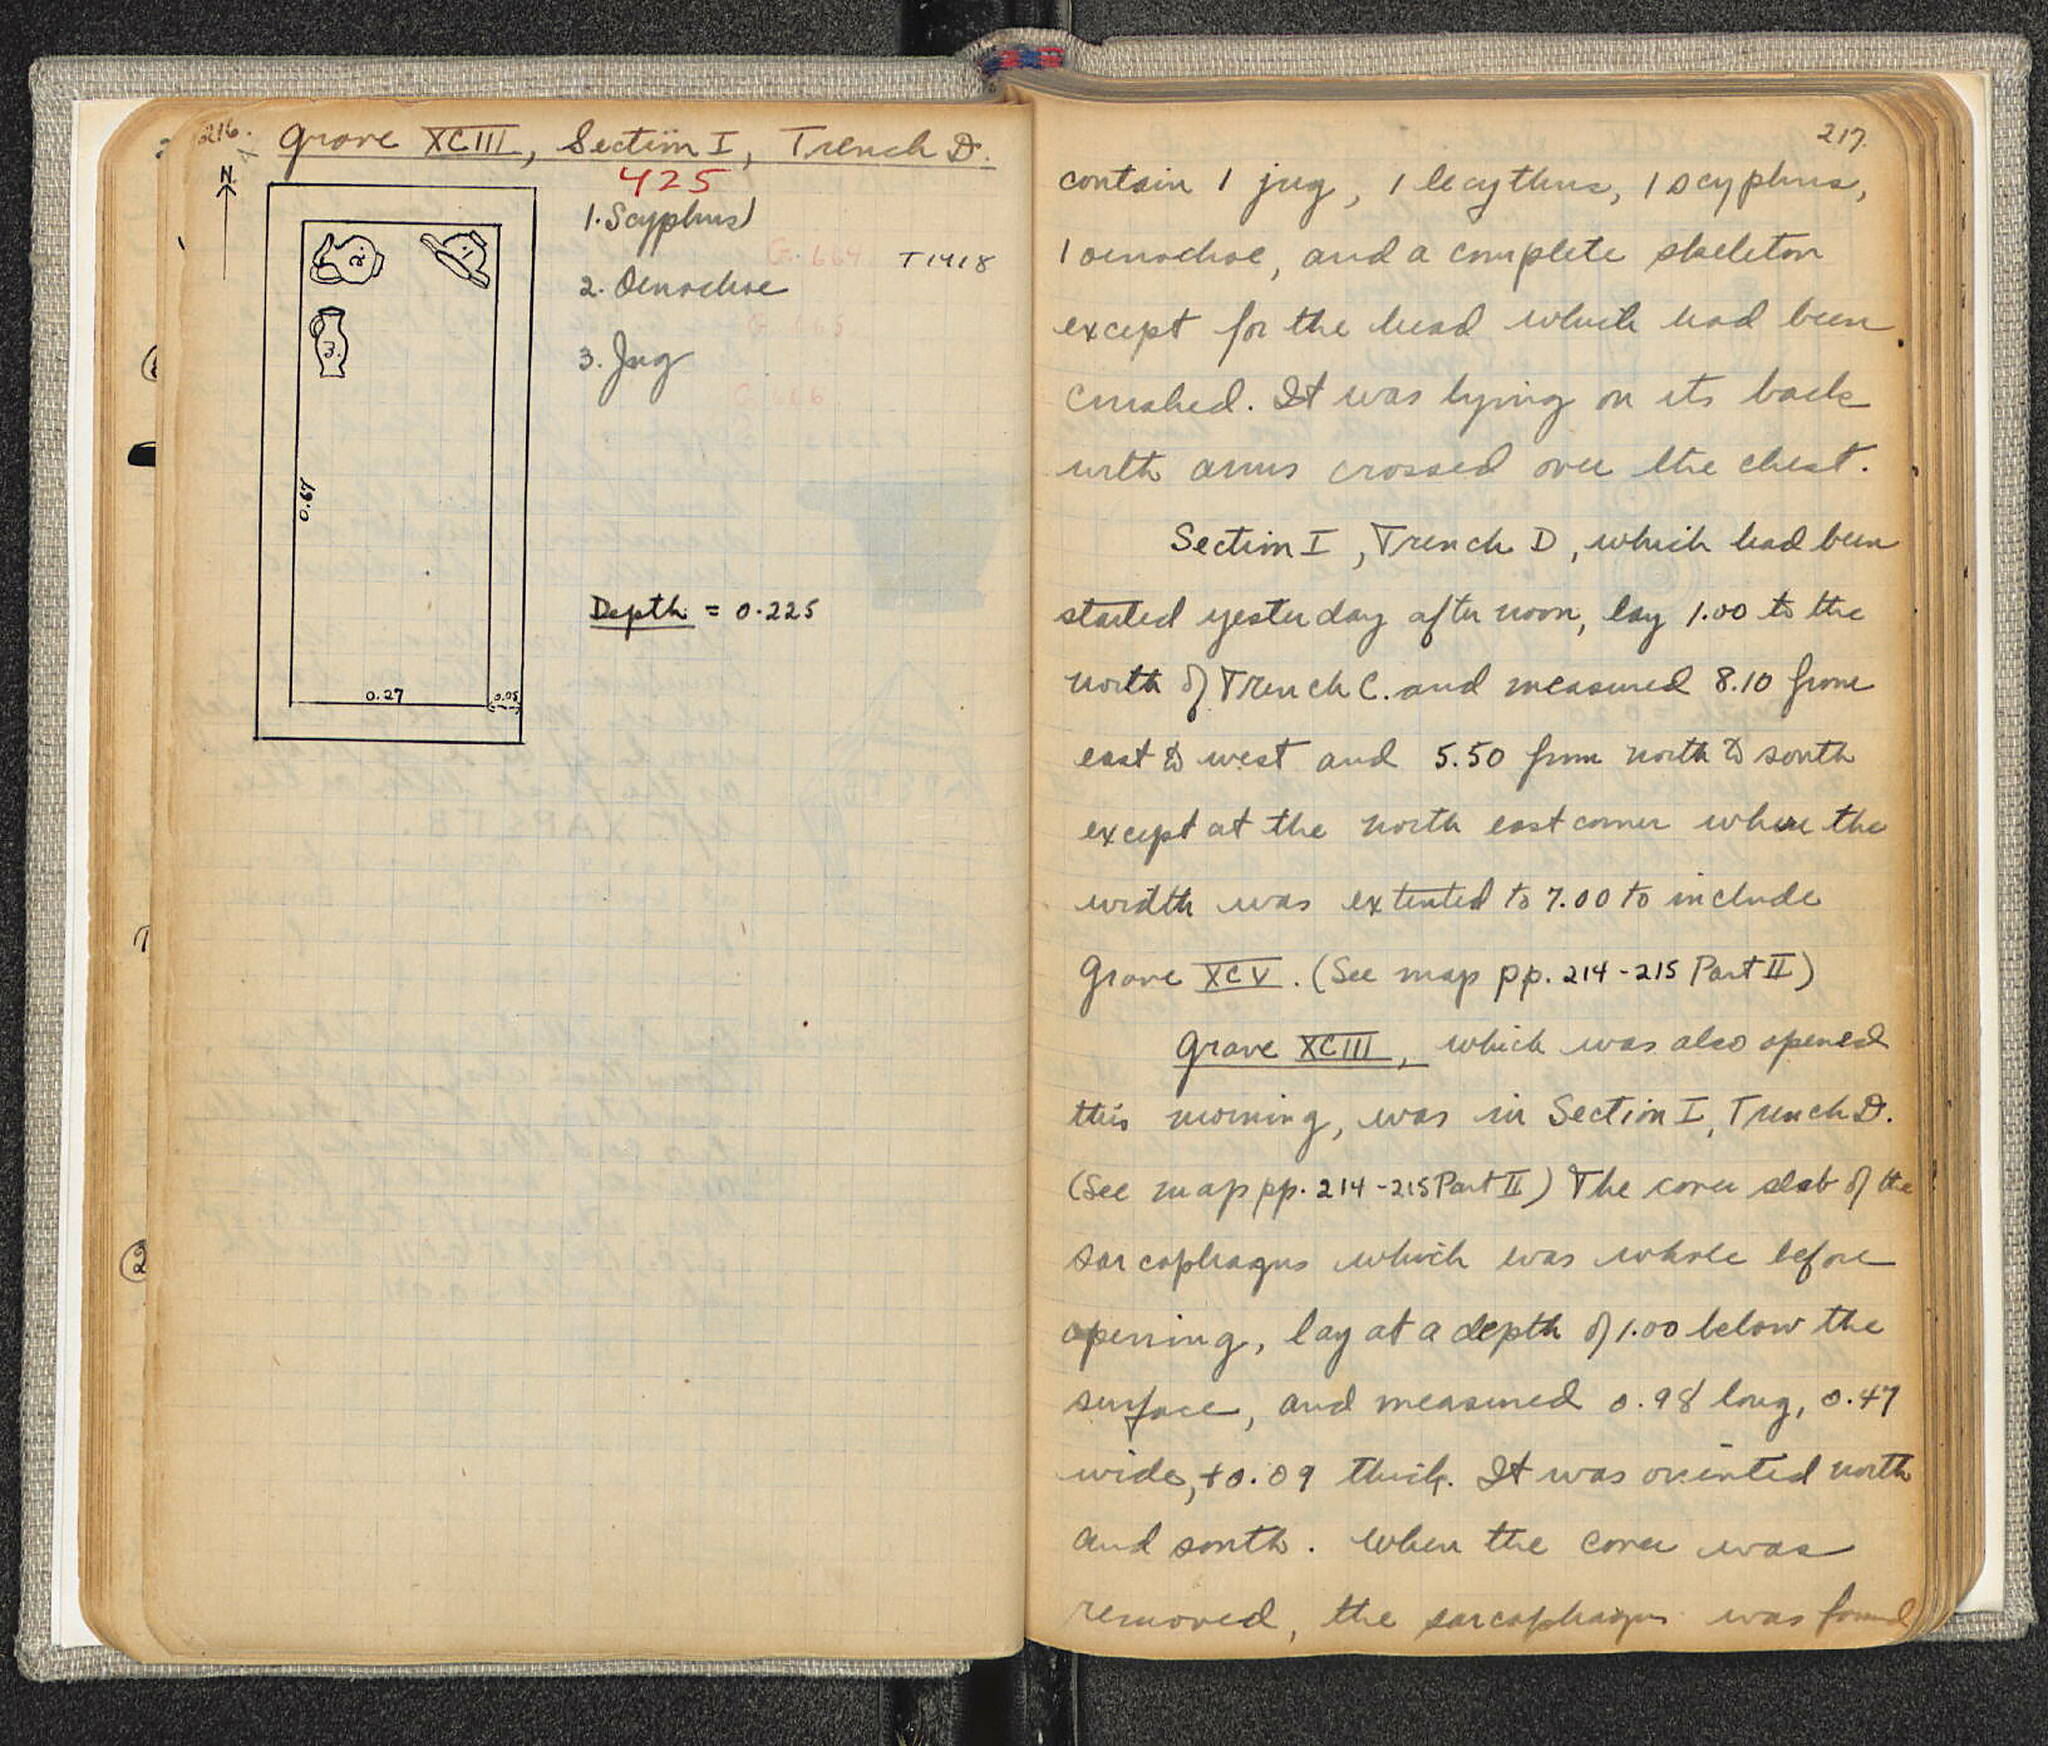 216.
Grave XCIII, Section I, Trench D.
N.
425
1. Scyphus
G. 664 T1418
2. Oenochoe
G. 665
3. Jug
G. 666
2.
1.
3.
0.67
Depth = 0.225
0.27
0.05
2
217.
contain 1 jug, 1 lecythus, 1 scyphus,
1 oenochoe, and a complete skeleton
except for the head which had been
crushed. It was lying on its back
with arms crossed over the chest.
Section I, Trench D, which had been
started yesterday afternoon, lay 1.00 to the
north of Trench C. and measured 8.10 from
east to west and 5.50 from north to south
except at the north east corner where the
width was extented to 7.00 to include
Grave XCV. (See map pp. 214-215 Part II)
Grave XCIII, which was also opened
this morning, was in Section I, Trench D.
(See map pp. 214-215 Part II) The cover slab of the
sarcophagus which was whole before
opening, lay at a depth of 1.00 below the
surface, and measured 0.98 long, 0.47
wide, + 0.09 thick. It was oriented north
and south. When the cover was
removed, the sarcophagus was found